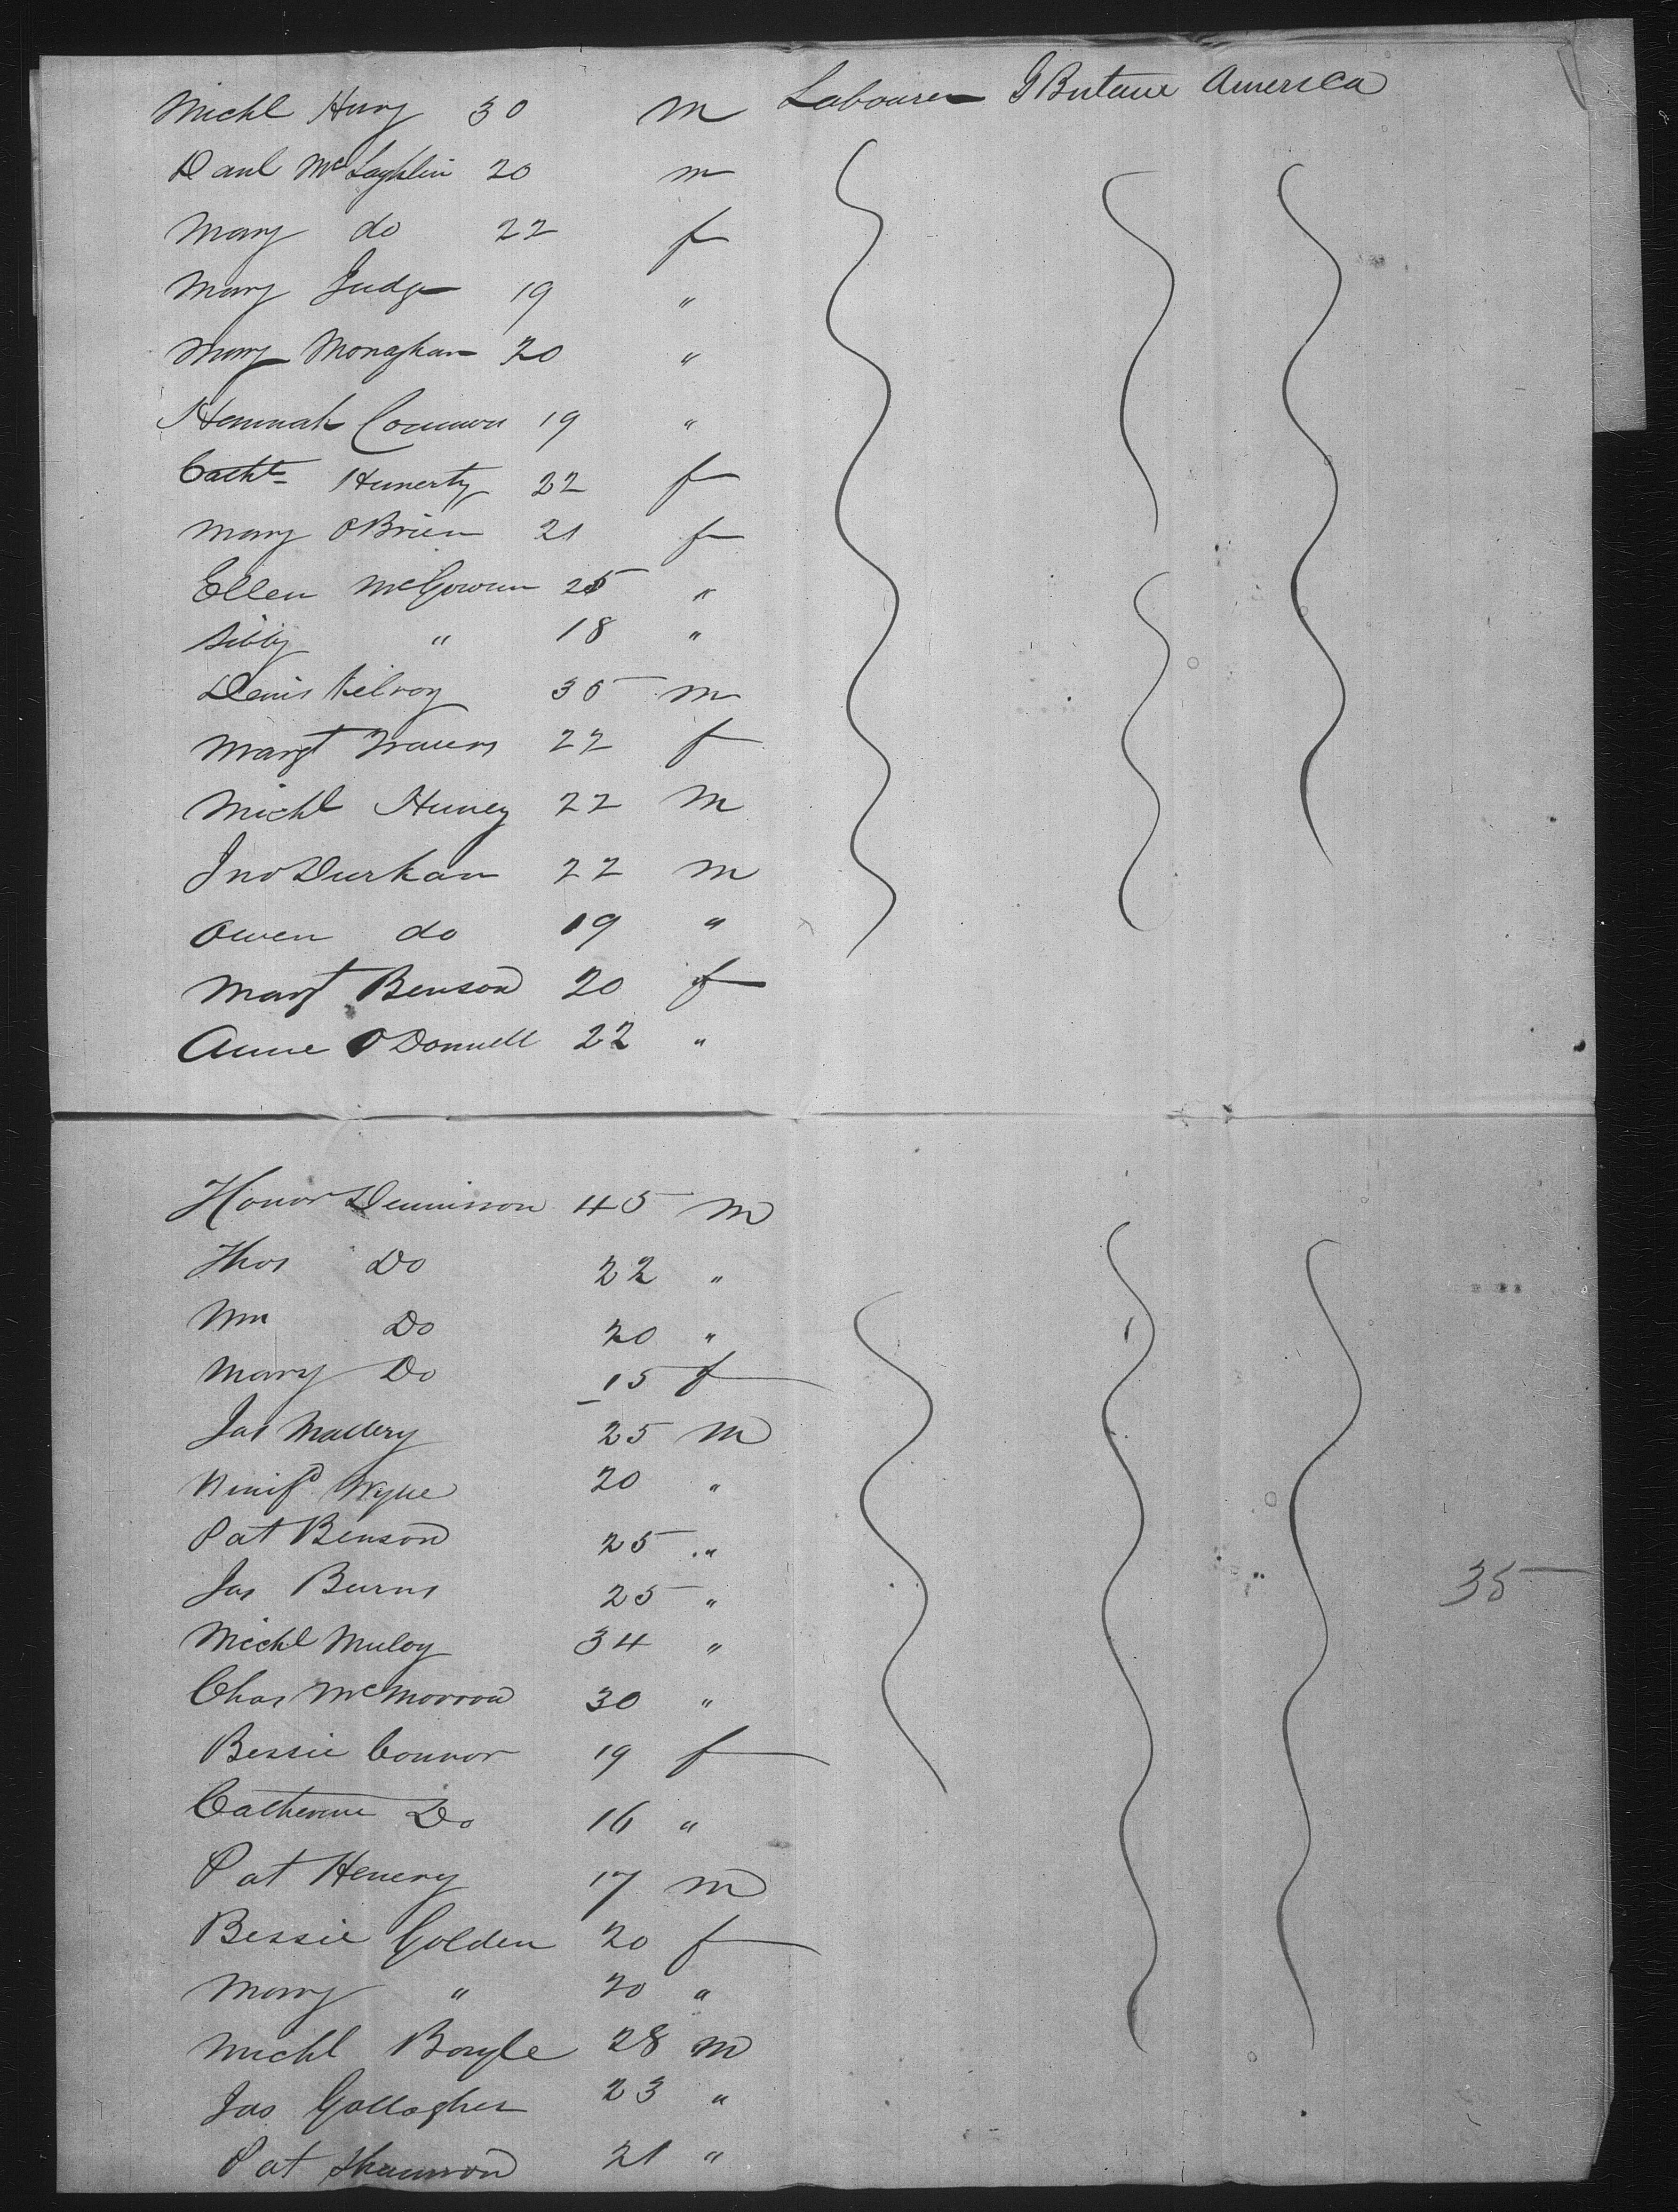 Michl Hury 30 m Labourer G Britain America
Danl McLoghlin 20 m
Mary do 22 f
Mary Judge 19 "
Mary Monaghan 20 "
Hannah 19 "
Catht 22 f
Mary O'Brien 21 f
Ellen McGowan 25 "
Sibby " 18 "
Denis Kilroy 35 m
Margt Travers 22 f
Michl 22 m
Jno Durkan 22 m
Owen do 19 "
Margt Benson 20 f
Anne O'Donnell 22 "
Honor Dennison 45 m
Thos Do 22 "
Wm Do 20 "
Mary Do 15 f
Jas Mallery 25 m
20 "
Pat Benson 25 "
Jas Burns 25 "
35
Michl Muloy 34 "
Chas McMorrow 30 "
Bessie Connor 19 f
Catherine Do 16 "
Pat Henery 17 m
Bessie Golden 20 f
Mary " 20 "
Michl Boyle 28 m
Jas Gallagher 23 "
Pat 21 "